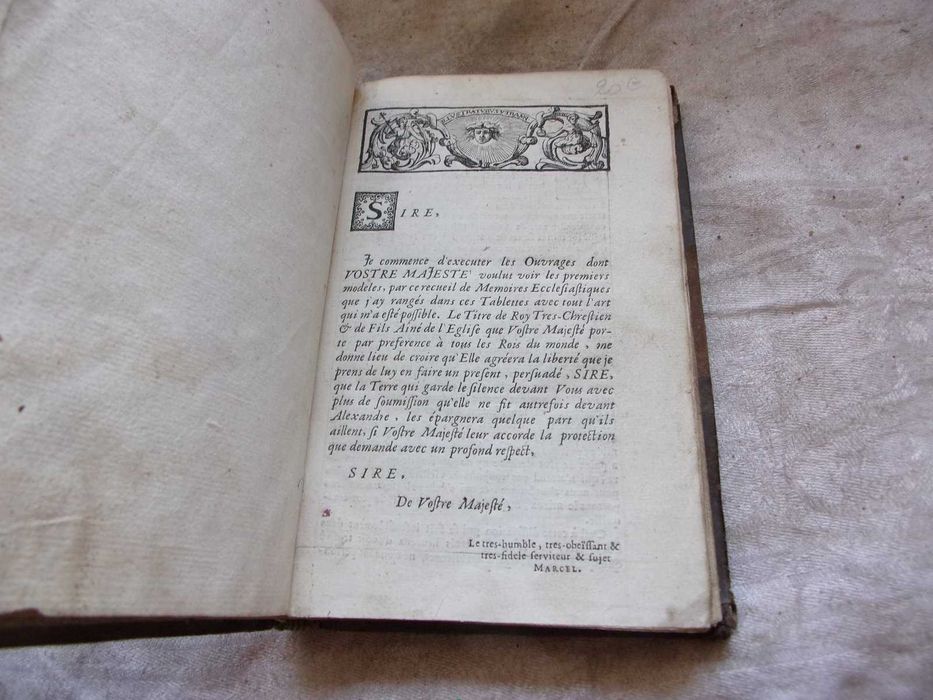 20 €
SIRE,
Je commence d'executer les Ouvrages dont
VOSTRE MAJESTE' voulut voir les premiers
modeles, par ce recueil de Memoires Ecclesiastiques
que j'ay rangés dans ces Tablettes avec tout l'art
qui m'a esté possible. Le Titre de Roy Tres-Chrestien
& de Fils Ainé de l'Eglise que Vostre Majesté por-
te par preference à tous les Rois du monde, me
donne lieu de croire qu'Elle agréera la liberté que je
prens de luy en faire un present, persuadé, SIRE,
que la Terre qui garde le silence devant Vous avec
plus de soumission qu'elle ne fit autrefois devant
Alexandre, les épargnera quelque part qu'ils
aillent, si Vostre Majesté leur accorde la protection
que demande avec un profond respect,
SIRE,
De Vostre Majesté,
Le tres-humble, tres-obeïssant &
tres-fidele serviteur & sujet
MARCEL.